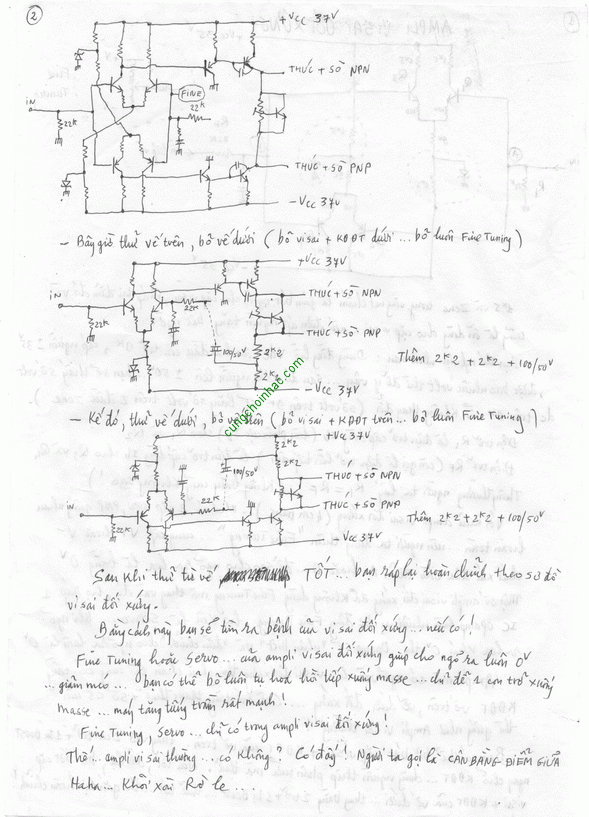 2
+Vcc 37V
THÚC + SÒ NPN
FINE
22K
iN
22K
THÚC + SÒ PNP
- Vcc 37V
- Bây giờ thử vế trên, bỏ vế dưới ( bỏ visai + KĐĐT dưới ... bỏ luôn Fine Tuning )
+Vcc 37V
iN
22K
22K
THÚC + SÒ NPN
THÚC + SÒ PNP
100/50V
2K2
2K2
Thêm 2K2 + 2K2 + 100/50V
- Vcc 37V
cungchoinhac.com
- Kế đó, thử vế dưới, bỏ vế trên ( bỏ visai + KĐĐT trên ... bỏ luôn Fine Tuning )
+Vcc 37V
2K2
2K2
100/50V
THÚC + SÒ NPN
22K
THÚC + SÒ PNP
iN
22K
Thêm 2K2 + 2K2 + 100/50V
- Vcc 37V
Sau khi thử từ vế TỐT ... bạn ráp lại hoàn chỉnh theo sơ đồ
vi sai đối xứng.
Bằng cách này bạn sẽ tìm ra bệnh của vi sai đối xứng ... nếu có !
Fine Tuning hoặc Servo ... của ampli vi sai đối xứng giúp cho ngõ ra luôn 0V
... giảm méo ... bạn có thể bỏ luôn tụ hoá hồi tiếp xuống masse ... chỉ để 1 con trở xuống
masse ... máy tăng tiếng trầm rất mạnh !
Fine Tuning, Servo ... chỉ có trong ampli vi sai đối xứng !
Thế ... ampli vi sai thường ... có không ? Có đấy ! Người ta gọi là CÂN BẰNG ĐIỂM GIỮA
Haha ... Khỏi xài Rờ le ....